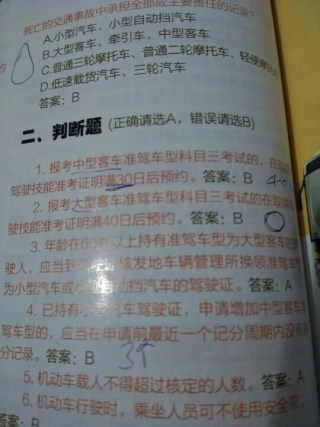 死亡的交通事故中承担全部或主要责任的记录
A.小型汽车、小型自动挡汽车
B.大型客车、牵引车、中型客车
C.普通三轮摩托车、普通二轮摩托车、轻便摩托
D.低速载货汽车、三轮汽车
答案：B
二、判断题（正确请选A，错误请选B）
1. 报考中型客车准驾车型科目三考试的，在取得
驾驶技能准考证明满30日后预约。答案：B
2. 报考大型客车准驾车型科目三考试的在取得
驶技能准考证明满40日后预约。答案：B
3. 年龄在60岁以上持有准驾车型为大型客车的
驶人，应当到 核发地车辆管理所换领准驾车
为小型汽车或 自动挡汽车的驾驶证。答案：A
4. 已持有小 汽车驾驶证，申请增加中型客车准
驾车型的，应当在申请前最近一个记分周期内没有
分记录。答案：B 3个
5. 机动车载人不得超过核定的人数。答案：A
6. 机动车行驶时，乘坐人员可不使用安全带，
答案：B